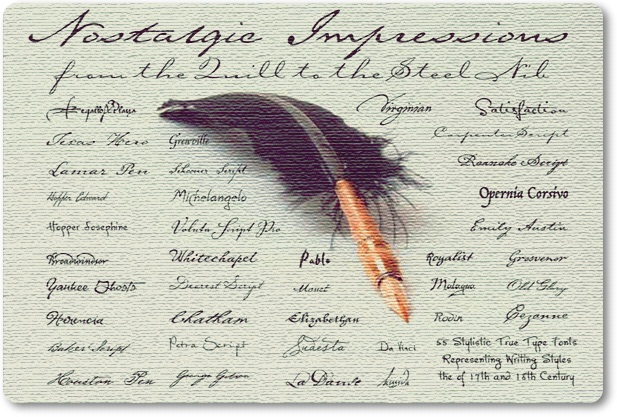 Nostalgic Impressions
from the Quill to the Steel Nib
Virginian Satisfaction
Texas Hero Grenville Carpenter Script
Lamar Pen Schooner Script Roanoke Script
Hopper Edward Michelangelo Opernia Corsivo
Hopper Josephine Voluta Script Pro Emily Austin
Broadwindsor Whitechapel Pablo Royalist Grosvenor
Yankee Ghosts Dearest Script Monet Malaga Old Glory
Herencia Chatham Elizabethan Rodin Cezanne
Baker Script Petra Script Da Vinci
Houston Pen George Gibson La Dante
55 Stylistic True Type Fonts
Representing Writing Styles
the of 17th and 18th Century